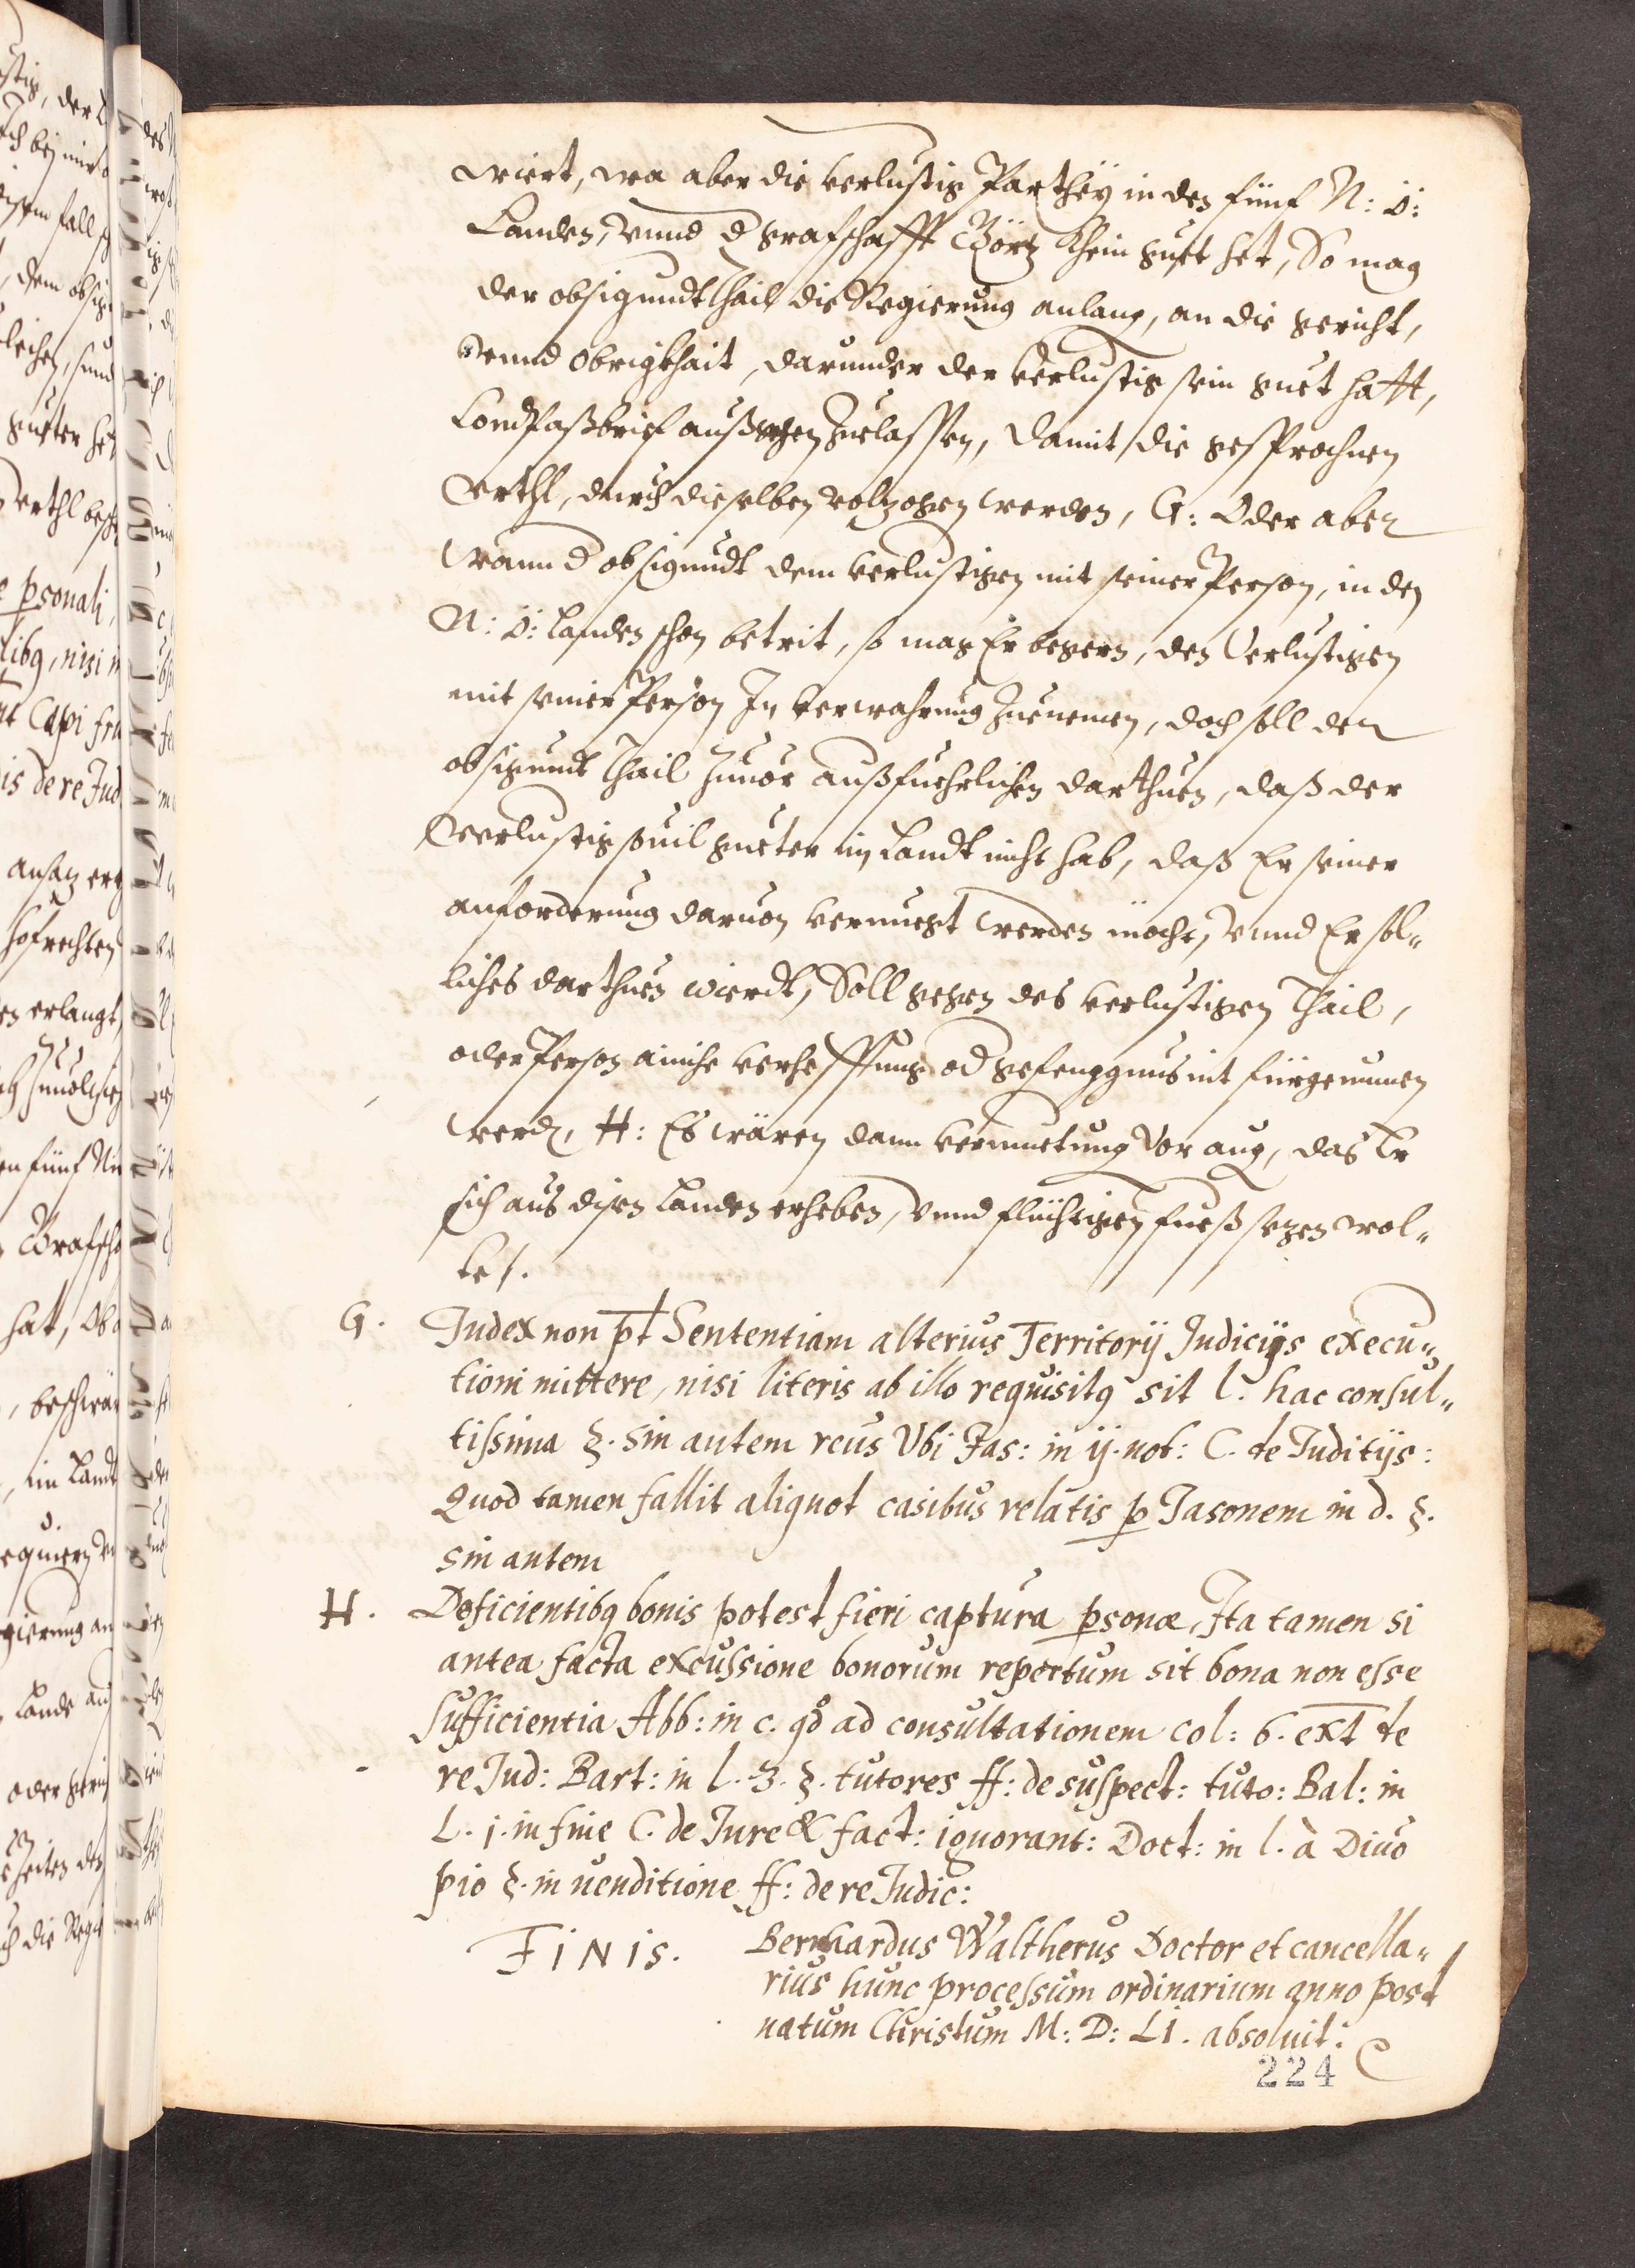 wiert, wa aber die verlustig Parthey in den fünf N: Ö:
Landen, vnnd d grafschafft Görtz khein guet het, So mag
der obsigundt thail die Regierung anlang, an die gericht,
vnnd Obrigkhait, darunder der verlustig sein guet hatt,
Compaßbrief außgehen Zuelassen, damit die gesprochnen
Vrthl, durch dieselben volzogen werden, G: Oder aber
Wann d obsigundt den verlustigen mit seiner Person, in den
N: Ö: Landen schon betrit, so mag Er begern, den Verlustigen
mit seiner Person In verwahrung Zuenemen, doch soll der
obsigundt thail Zuuor außfuehrlichen darthuen, daß der
Verlustig souil gueter im Landt nicht hab, daß Er seiner
anforderung daruon vernuegt werden möcht, vnnd Er sol„
liches darthuen wierdt, Soll gegen des verlustigen thail,
oder Person ainiche verhefftung od gefengnus nit fürgenumen
werd, H: Es wären dann vermuetung vor aug, das Er
sich aus disen Landen erheben, vnnd flüchtigen fueß sezen wol„
te /.
G. Judex non pt Sententiam alterius Territorij Judicijs execu„
tioni mittere, nisi literis ab illo requisitq sit l. hac consul„
tissima §. sin autem reus Vbi Jas: in ij. not: C. de Juditijs:
Quod tamen fallit aliquot casibus relatis p Jasonem in d. §.
sin autem
H. Deficientibq bonis potest fieri captura psonæ, Ita tamen si
antea facta excussione bonorum repertum sit bona non esse
sufficientia Abb: in c. qd ad consultationem col: 6. ext de
re Jud: Bart: in l. 3. §. tutores ff: de suspect: tuto: Bal: in
L. j. in fine C. de Jure & fact: ignorant: Doct: in l. à Diuo
pio §. in uenditione ff: de re Judic:
FINIS. Bernhardus Waltherus Doctor et cancella„
rius hunc processum ordinarium anno post
natum Christum M: D: LI. absoluit:
224